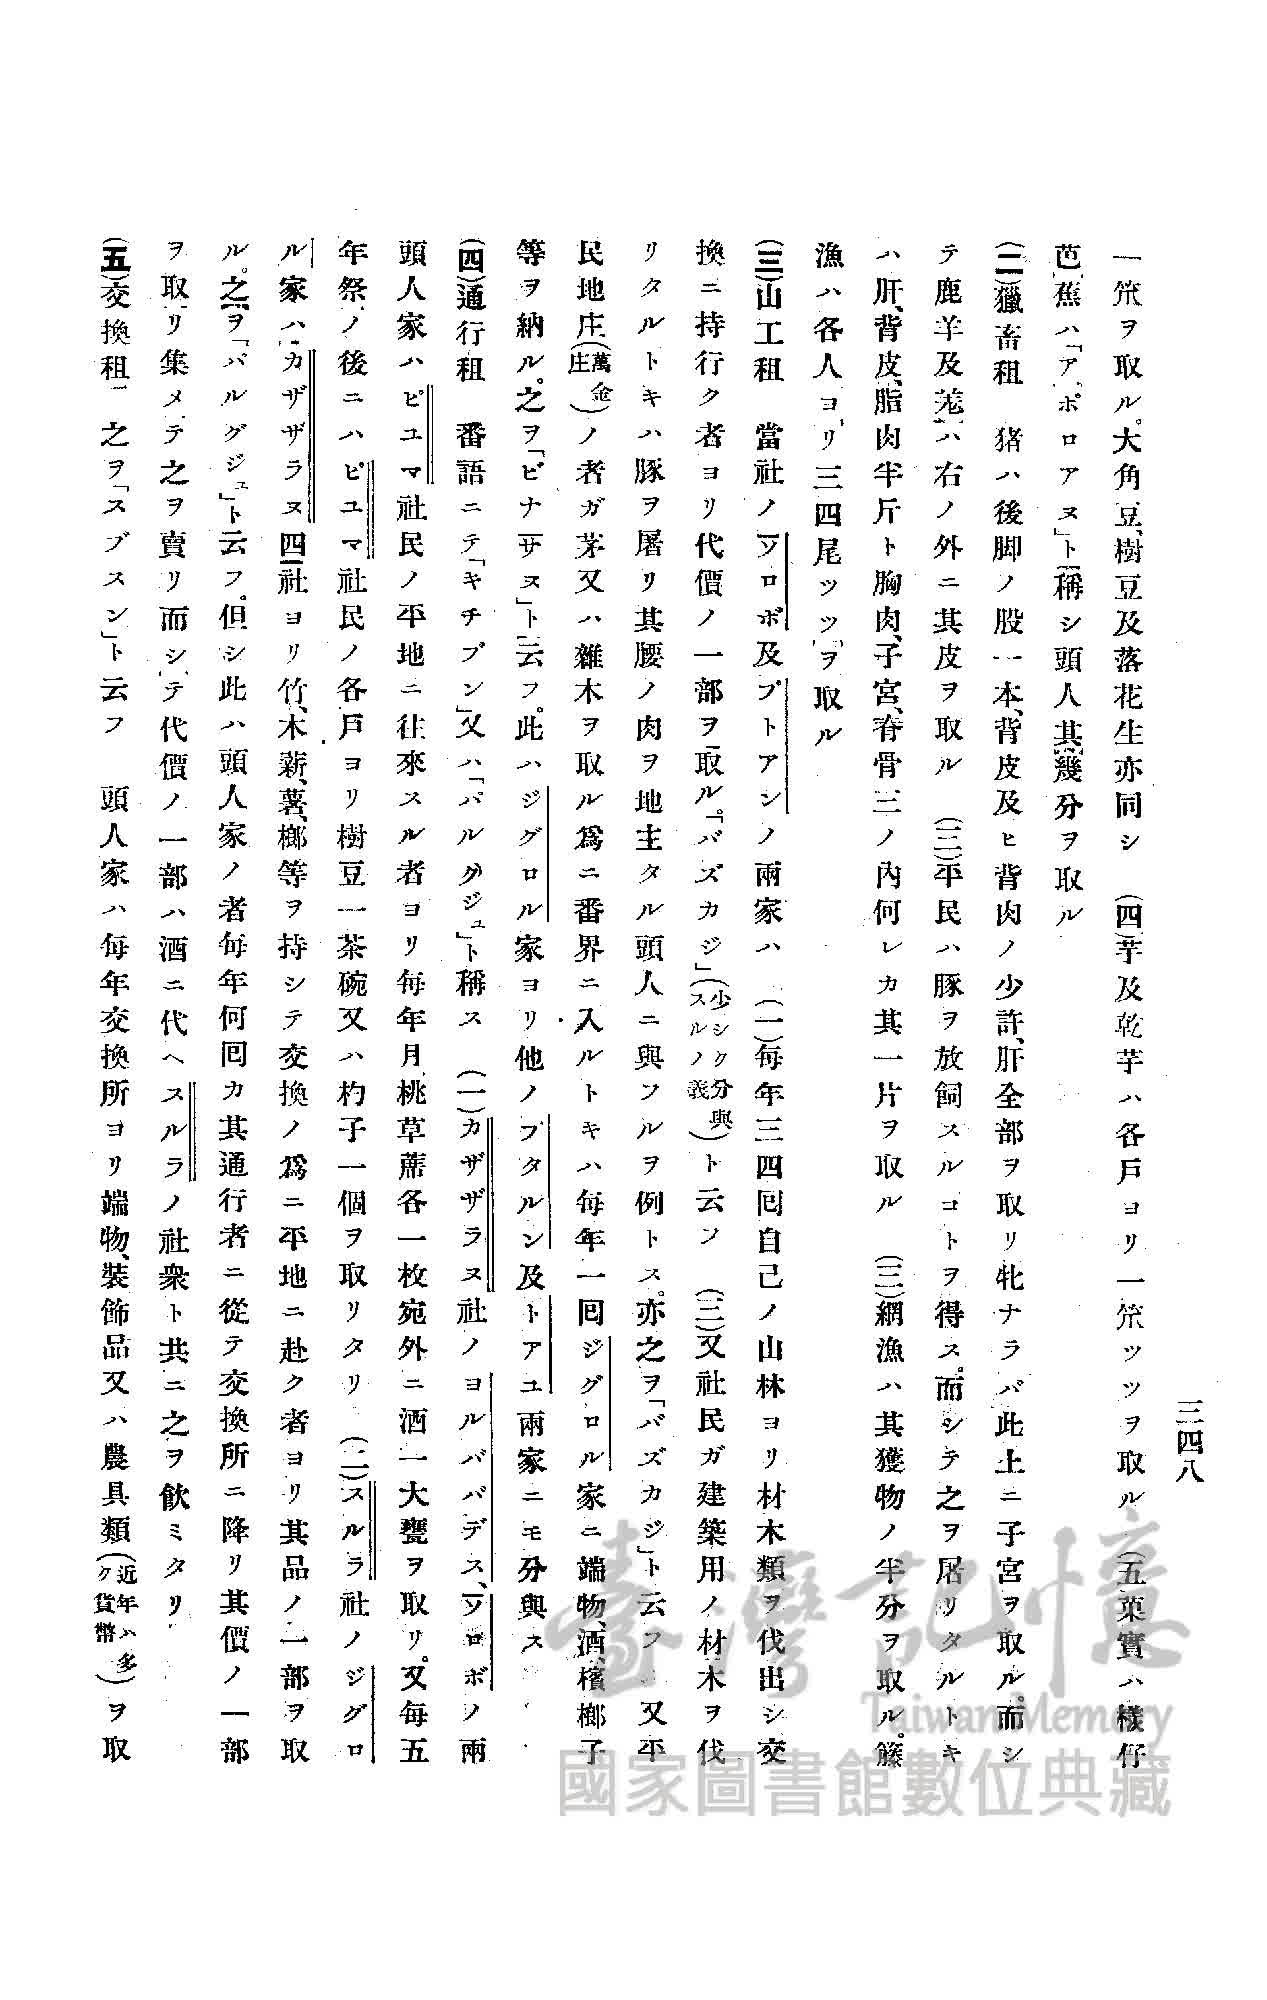 三四八
一笊ヲ取ル。大角豆、樹豆及落花生亦同シ (四)芋及乾芋ハ各戸ヨリ一笊ツツヲ取ル (五)菓實ハ樣仔
芭蕉ハ「アポロアヌ」ト稱シ頭人其幾分ヲ取ル
(二)獵畜租 猪ハ後脚ノ股一本、背皮及ヒ背肉ノ少許、肝全部ヲ取リ牝ナラバ此土ニ子宮ヲ取ル。而シ
テ鹿羊及羗ハ右ノ外ニ其皮ヲ取ル (二)平民ハ豚ヲ放飼スルコトヲ得ス。而シテ之ヲ屠リタルトキ
ハ肝、背皮、脂肉半斤ト胸肉、子宮、脊骨三ノ內何レカ其一片ヲ取ル (三)網漁ハ其獲物ノ半分ヲ取ル。籐
漁ハ各人ヨリ三四尾ツツヲ取ル
(三)山工租 當社ノソロボ及プトアンノ兩家ハ (一)每年三四囘自己ノ山林ヨリ材木類ヲ伐出シ交
換ニ持行ク者ヨリ代價ノ一部ヲ取ル。「バズカジ」(少シク分與スルノ義)ト云フ (二)又社民ガ建築用ノ材木ヲ伐
リタルトキハ豚ヲ屠リ其腰ノ肉ヲ地主タル頭人ニ與フルヲ例トス。亦之ヲ「バズカジ」ト云フ 又平
民地庄(萬金庄)ノ者ガ茅又ハ雜木ヲ取ル爲ニ番界ニ入ルトキハ每年一囘ジグロル家ニ端物、酒、檳榔子
等ヲ納ル。之ヲ「ビナサヌ」ト云フ。此ハジグロル家ヨリ他ノブタルン及トアユ兩家ニモ分與ス
(四)通行租 番語ニテ「キチブン」又ハ「パルグジュ」ト稱ス (一)カザザラヌ社ノヨルババデス、ソロボノ兩
頭人家ハピユマ社民ノ平地ニ往來スル者ヨリ每年月桃草蓆各一枚宛外ニ酒一大甕ヲ取リ。又每五
年祭ノ後ニハピユマ社民ノ各戸ヨリ樹豆一茶碗又ハ杓子一個ヲ取リタリ (二)スルラ社ノジグロ
ル家ハカザザラヌ四社ヨリ竹、木薪、薯、榔等ヲ持シテ交換ノ爲ニ平地ニ赴ク者ヨリ其品ノ一部ヲ取
ル。之ヲ「パルグジュ」ト云フ。但シ此ハ頭人家ノ者每年何囘カ其通行者ニ從テ交換所ニ降リ其價ノ一部
ヲ取リ集メテ之ヲ賣リ而シテ代價ノ一部ハ酒ニ代ヘスルラノ社衆ト共ニ之ヲ飮ミタリ
(五)交換租 之ヲ「スブスン」ト云フ 頭人家ハ每年交換所ヨリ端物、裝飾品又ハ農具類(近年ハ多ク貨幣)ヲ取
臺灣記憶
Taiwan Memory
國家圖書館數位典藏